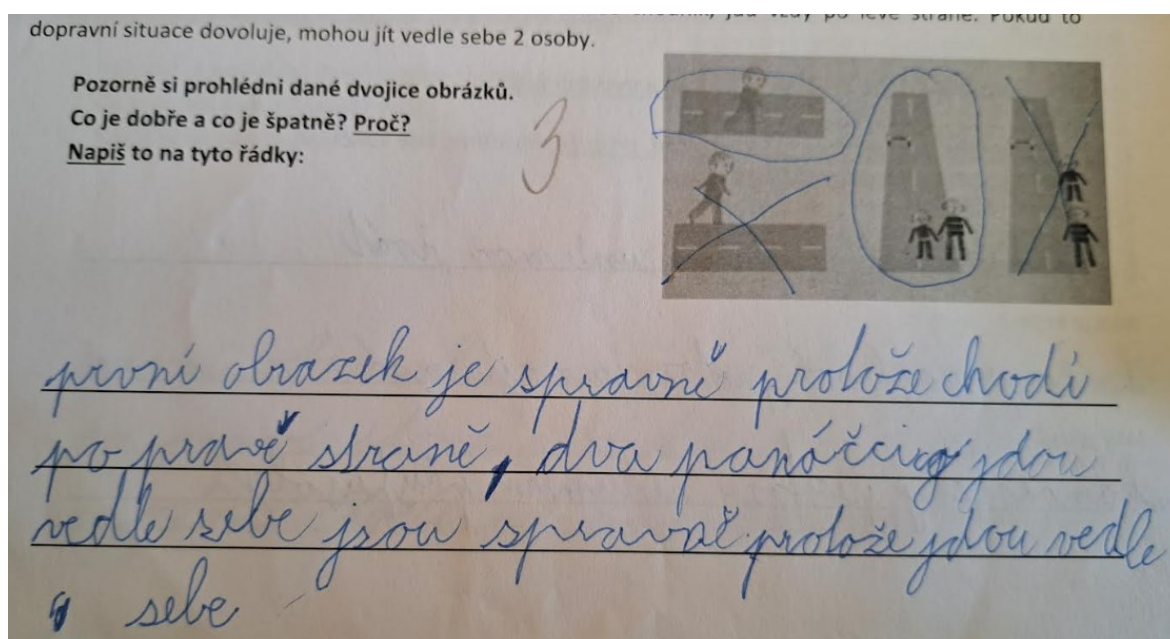 dopravní situace dovoluje, mohou jít vedle sebe 2 osoby.
Pozorně si prohlédni dané dvojice obrázků.
Co je dobře a co je špatně? Proč?
Napiš to na tyto řádky:
3
první obrazek je spravně protože chodí
po pravě straně, dva panáčci jdou
vedle sebe jsou spravně protože jdou vedle
sebe